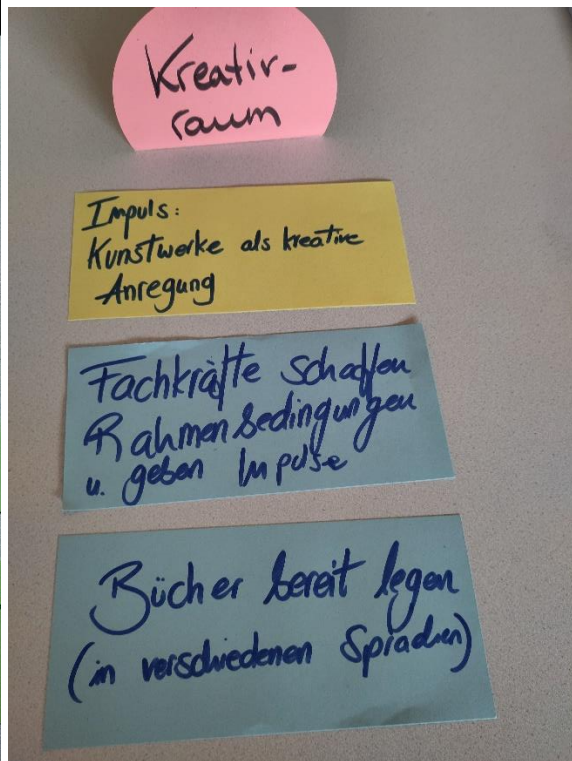 Kreativ-
raum
Impuls:
Kunstwerke als kreative
Anregung
Fachkräfte schaffen
Rahmenbedingungen
u. geben Impulse
Bücher bereit legen
(in verschiedenen Sprachen)